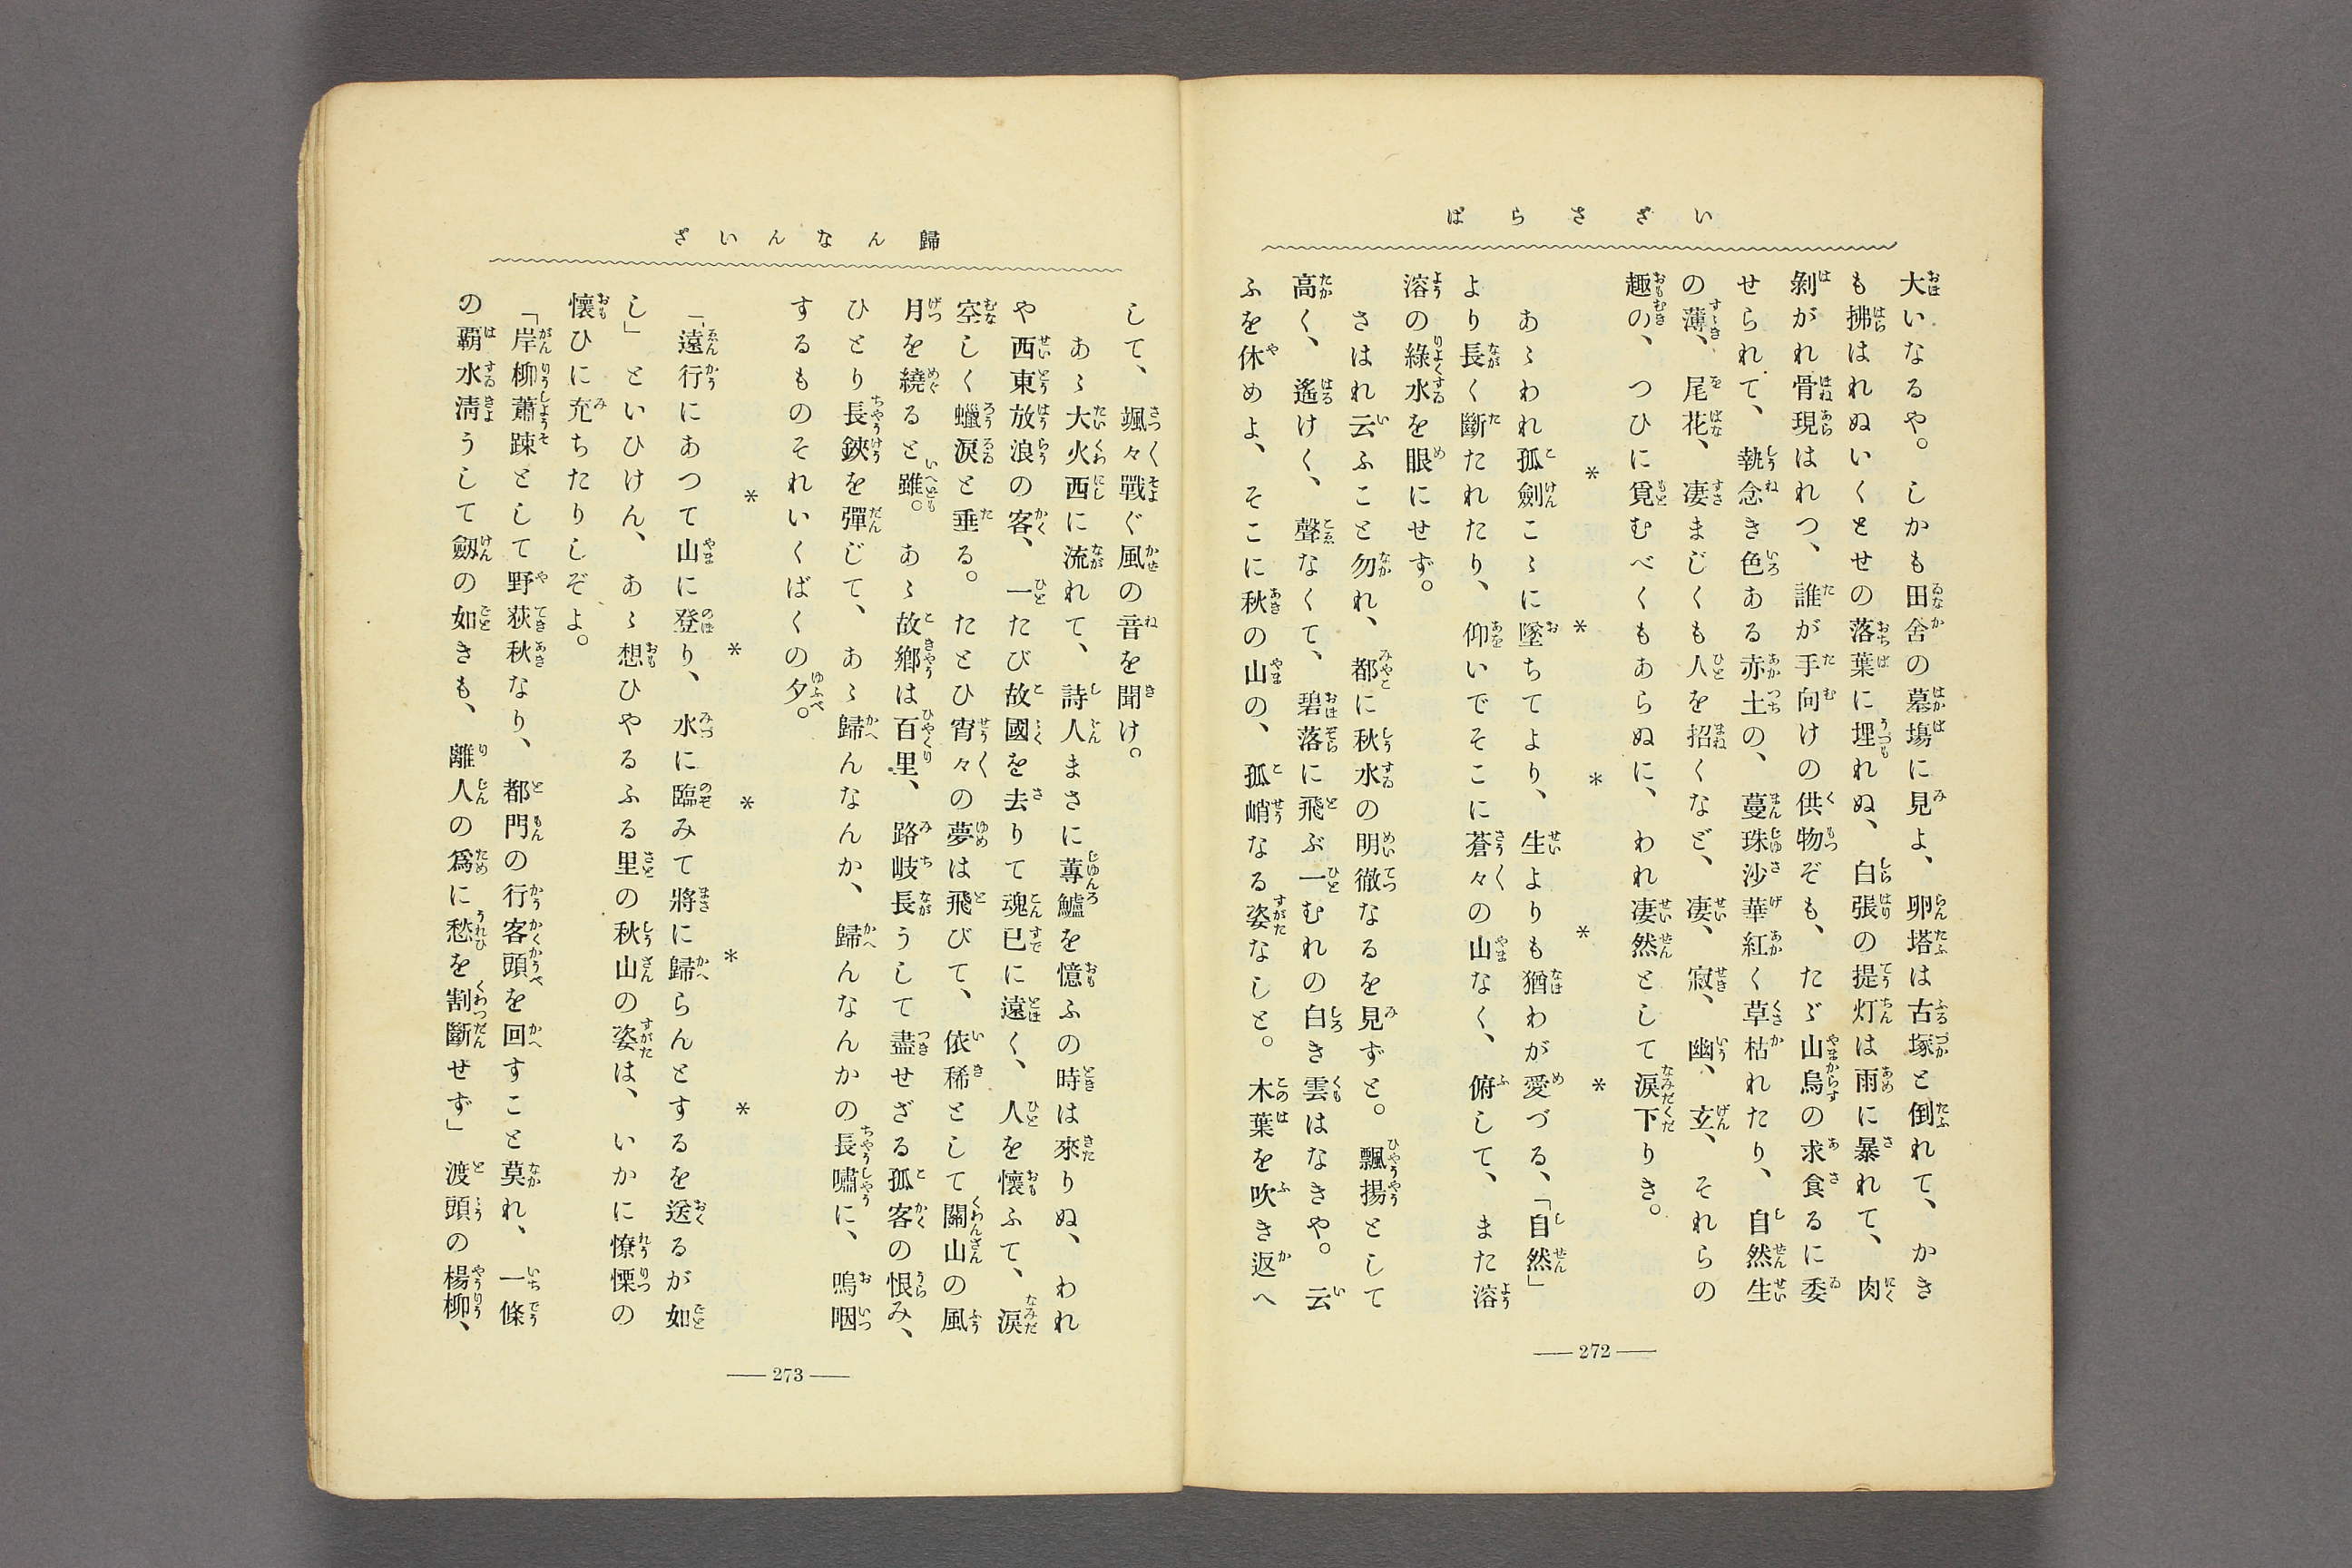 いざさらば
大いなるや。しかも田舍の墓塲に見よ、卵塔は古塚と倒れて、かき
も拂はれぬいくとせの落葉に埋れぬ、白張の提灯は雨に暴れて、肉
剝がれ骨現はれつ、誰が手向けの供物ぞも、たゞ山烏の求食るに委
せられて、執念き色ある赤土の、蔓珠沙華紅く草枯れたり、自然生
の薄、尾花、凄まじくも人を招くなど、凄、寂、幽、玄、それらの
趣の、つひに覓むべくもあらぬに、われ凄然として淚下りき。
＊＊＊＊＊
あゝわれ孤劍こゝに墜ちてより、生よりも猶わが愛づる、「自然」
より長く斷たれたり、仰いでそこに蒼々の山なく、俯して、また溶
溶の綠水を眼にせず。
さはれ云ふこと勿れ、都に秋水の明徹なるを見ずと。飄揚として
高く、遙けく、聲なくて、碧落に飛ぶ一むれの白き雲はなきや。云
ふを休めよ、そこに秋の山の、孤峭なる姿なしと。木葉を吹き返へ
— 272 —
歸んなんいざ
して、颯々戰ぐ風の音を聞け。
あゝ大火西に流れて、詩人まさに蓴鱸を憶ふの時は來りぬ、われ
や西東放浪の客、一たび故國を去りて魂已に遠く、人を懷ふて、淚
空しく蠟淚と垂る。たとひ宵々の夢は飛びて、依稀として關山の風
月を繞ると雖。あゝ故鄕は百里、路岐長うして盡せざる孤客の恨み、
ひとり長鋏を彈じて、あゝ歸んなんか、歸んなんかの長嘯に、嗚咽
するものそれいくばくの夕。
＊＊＊＊＊
「遠行にあつて山に登り、水に臨みて將に歸らんとするを送るが如
し」といひけん、あゝ想ひやるふる里の秋山の姿は、いかに憭慄の
懷ひに充ちたりしぞよ。
「岸柳蕭踈として野荻秋なり、都門の行客頭を回すこと莫れ、一條
の覇水淸うして劔の如きも、離人の爲に愁を割斷せず」渡頭の楊柳、
— 273 —